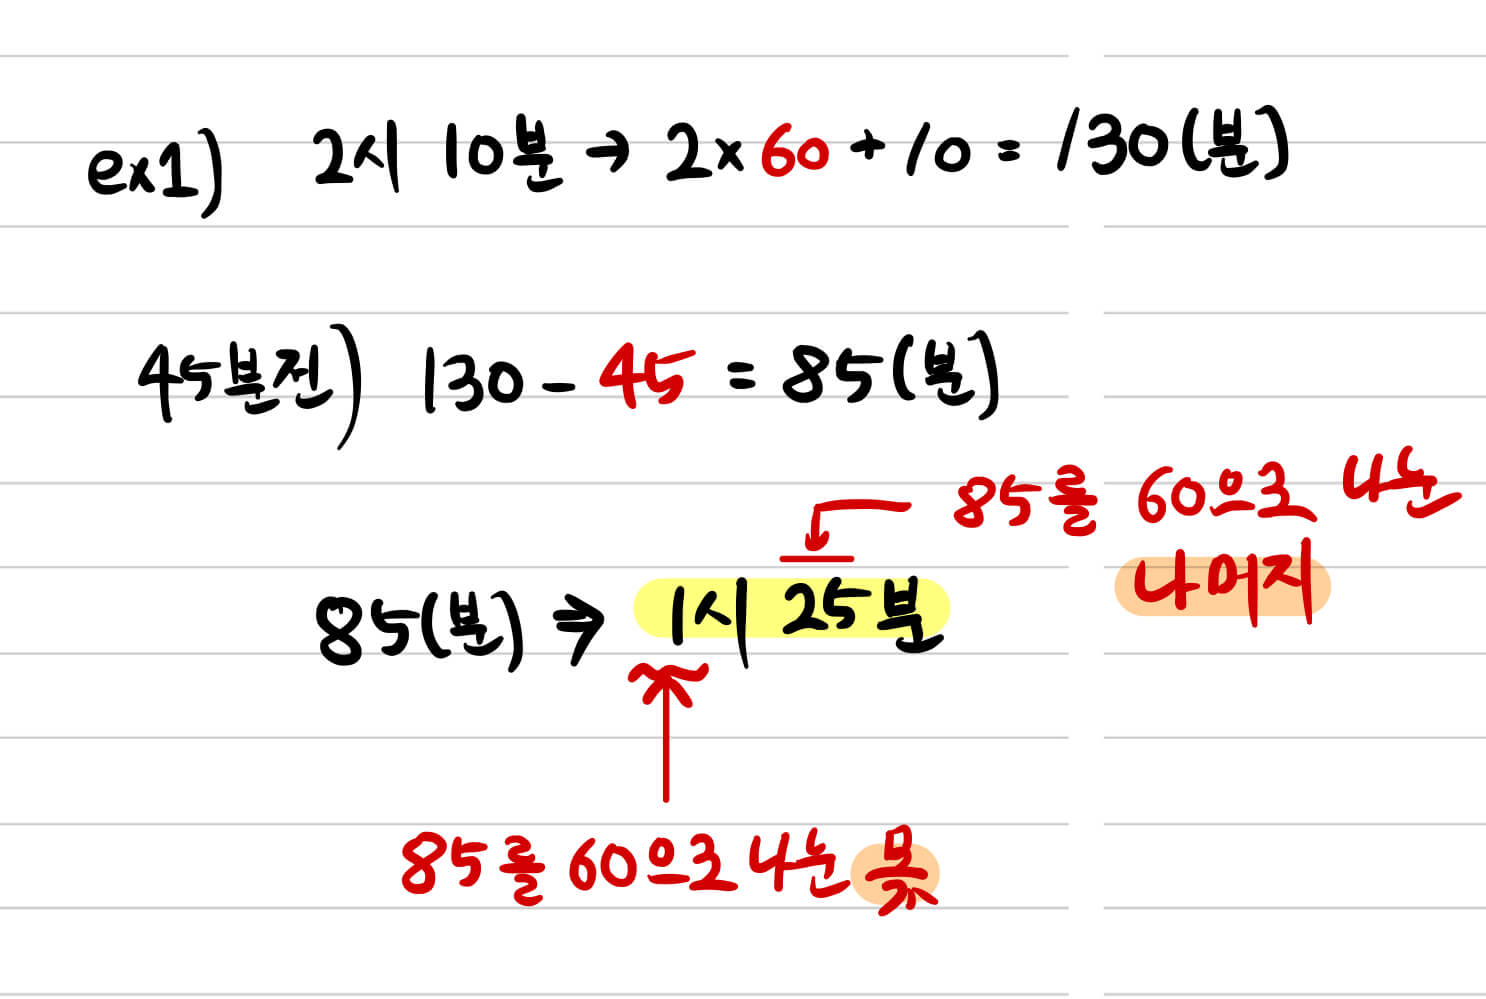 ex1) 2시 10분 → 2×60+10=130(분)
45분전) 130-45=85(분)
85를 60으로 나눈
나머지
85(분) ⇒ 1시 25분
85를 60으로 나눈 몫